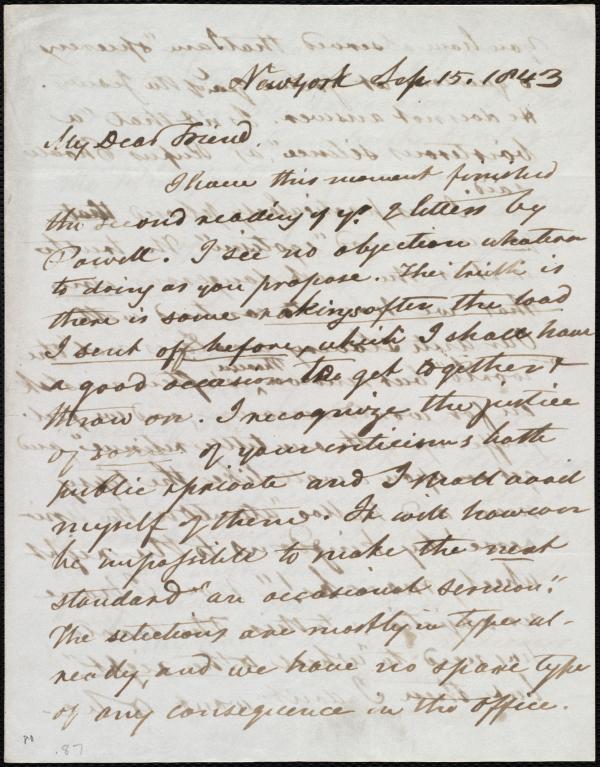 New York Sep. 15. 1843
My Dear Friend.
I have this moment finished
the second reading of yr. 2 letters by
Powell. I see no objection whatever
to doing as you propose. The truth is
there is some rakings after the load
I sent off before, which I shall have
a good occasion to get together &
throw on. I recognize the justice
of some of your criticisms both
public & private and I shall avail
myself of them. It will however
be impossible to make the next
standard "an occasional sermon".
The selections are mostly in type al-
ready and we have no spare type
of any consequence in the office.
.87